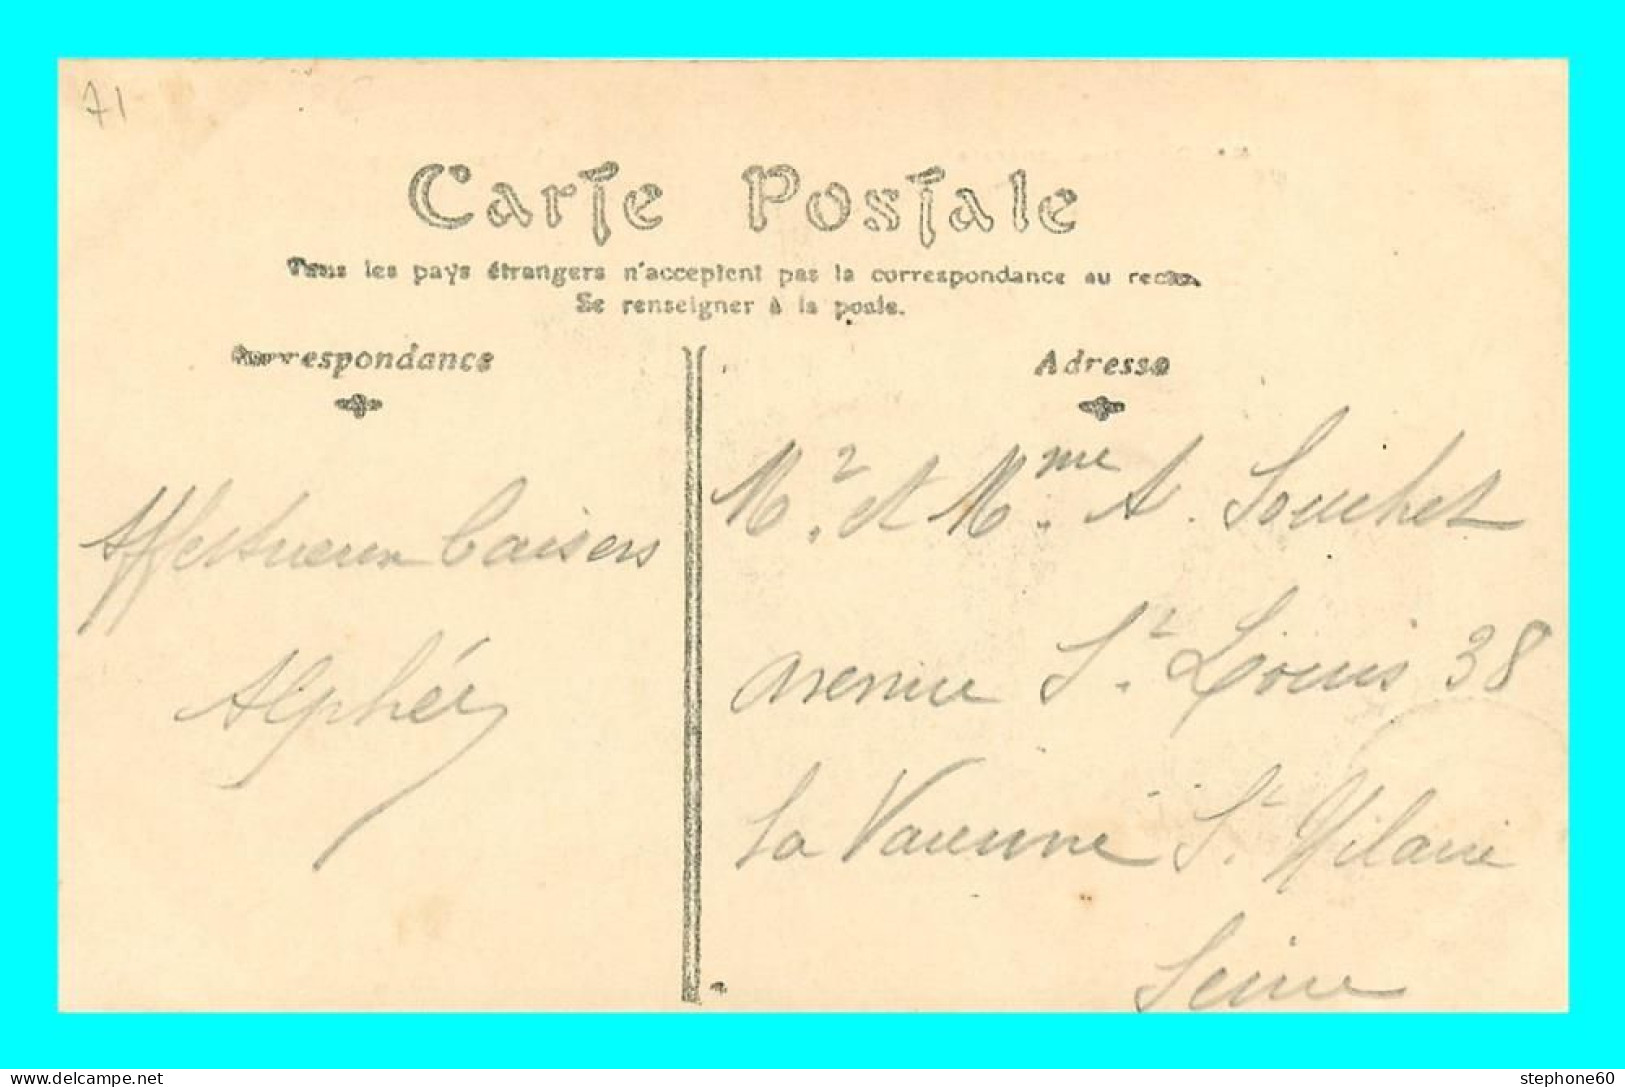 71
Carte Postale
Tous les pays étrangers n'acceptent pas la correspondance au recto.
Se renseigner à la poste.
Correspondance
Adresse
Affectueux baisers
Alphée
Mr. et Mme. A. Souchet
avenue St. Louis 38
La Varenne St. Hilaire
Seine
stephone60